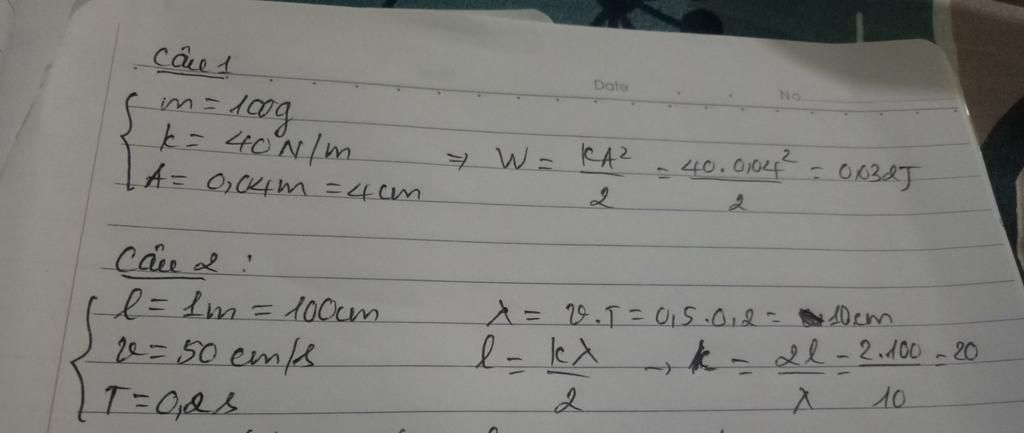 Câu 1
Date No
m = 100g
k = 40N/m
A = 0,04m = 4cm
⇒ W = kA²/2 = 40.0,04²/2 = 0,032J
Câu 2 :
l = 1m = 100cm
v = 50 cm/s
T = 0,2s
λ = v.T = 0,5.0,2 = 10cm
l = kλ/2 → k = 2l/λ = 2.100/10 = 20